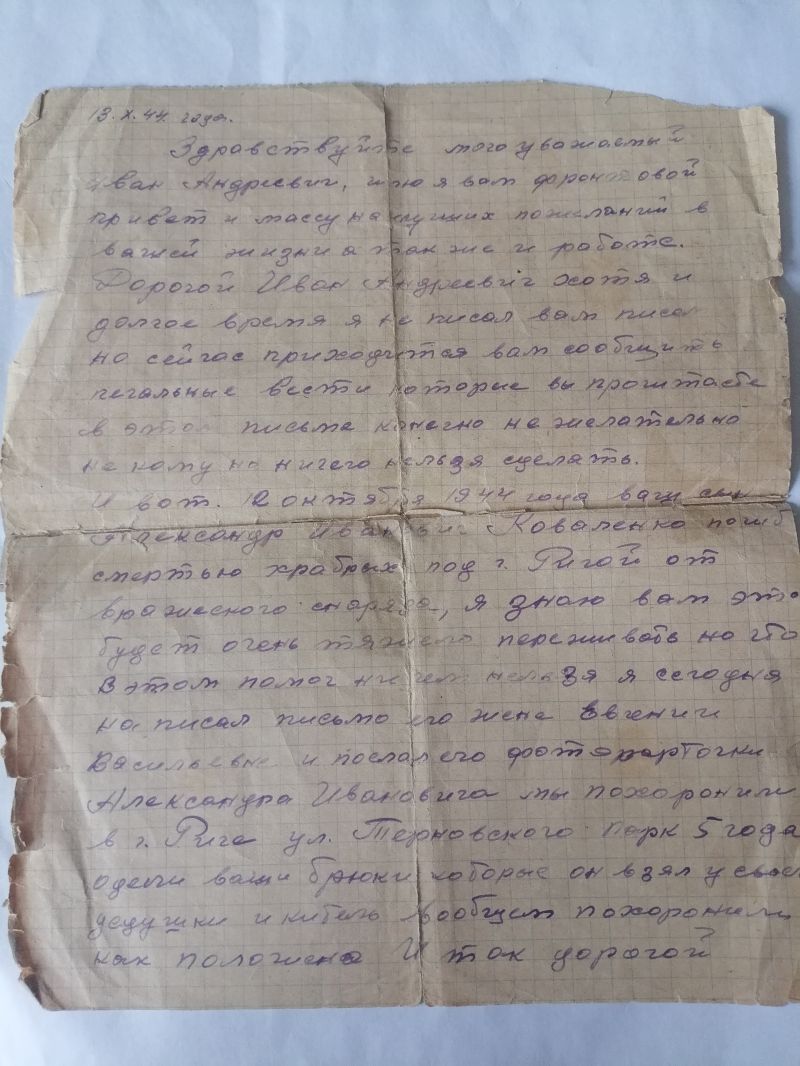 13.X.44. года.
Здравствуйте многоуважаемый
Иван Андреевич, шлю я вам фронтовой
привет и массу наилучших пожеланий в
вашей жизни а так же и работе.
Дорогой Иван Андреевич хотя и
долгое время я не писал вам писем
но сейчас приходится вам сообщить
печальные вести которые вы прочитаете
в этом письме конечно не желательно
не кому но ничего нельзя сделать.
И вот. 12 октября 1944 года ваш сын
Александр Иванович Коваленко погиб
смертью храбрых под г. Ригой от
вражеского снаряда, я знаю вам это
будет очень тяжело переживать но что
в этом помоч ни чем нельзя я сегодня
на писал письмо его жене Евгении
Васильевне и послал его фотокарточки
Александра Ивановича мы похоронили
в г. Рига ул. парк 5 года
одели ваши брюки которые он взял у свое
дедушки и китель вообщем похоронили
как положено И так дорогой